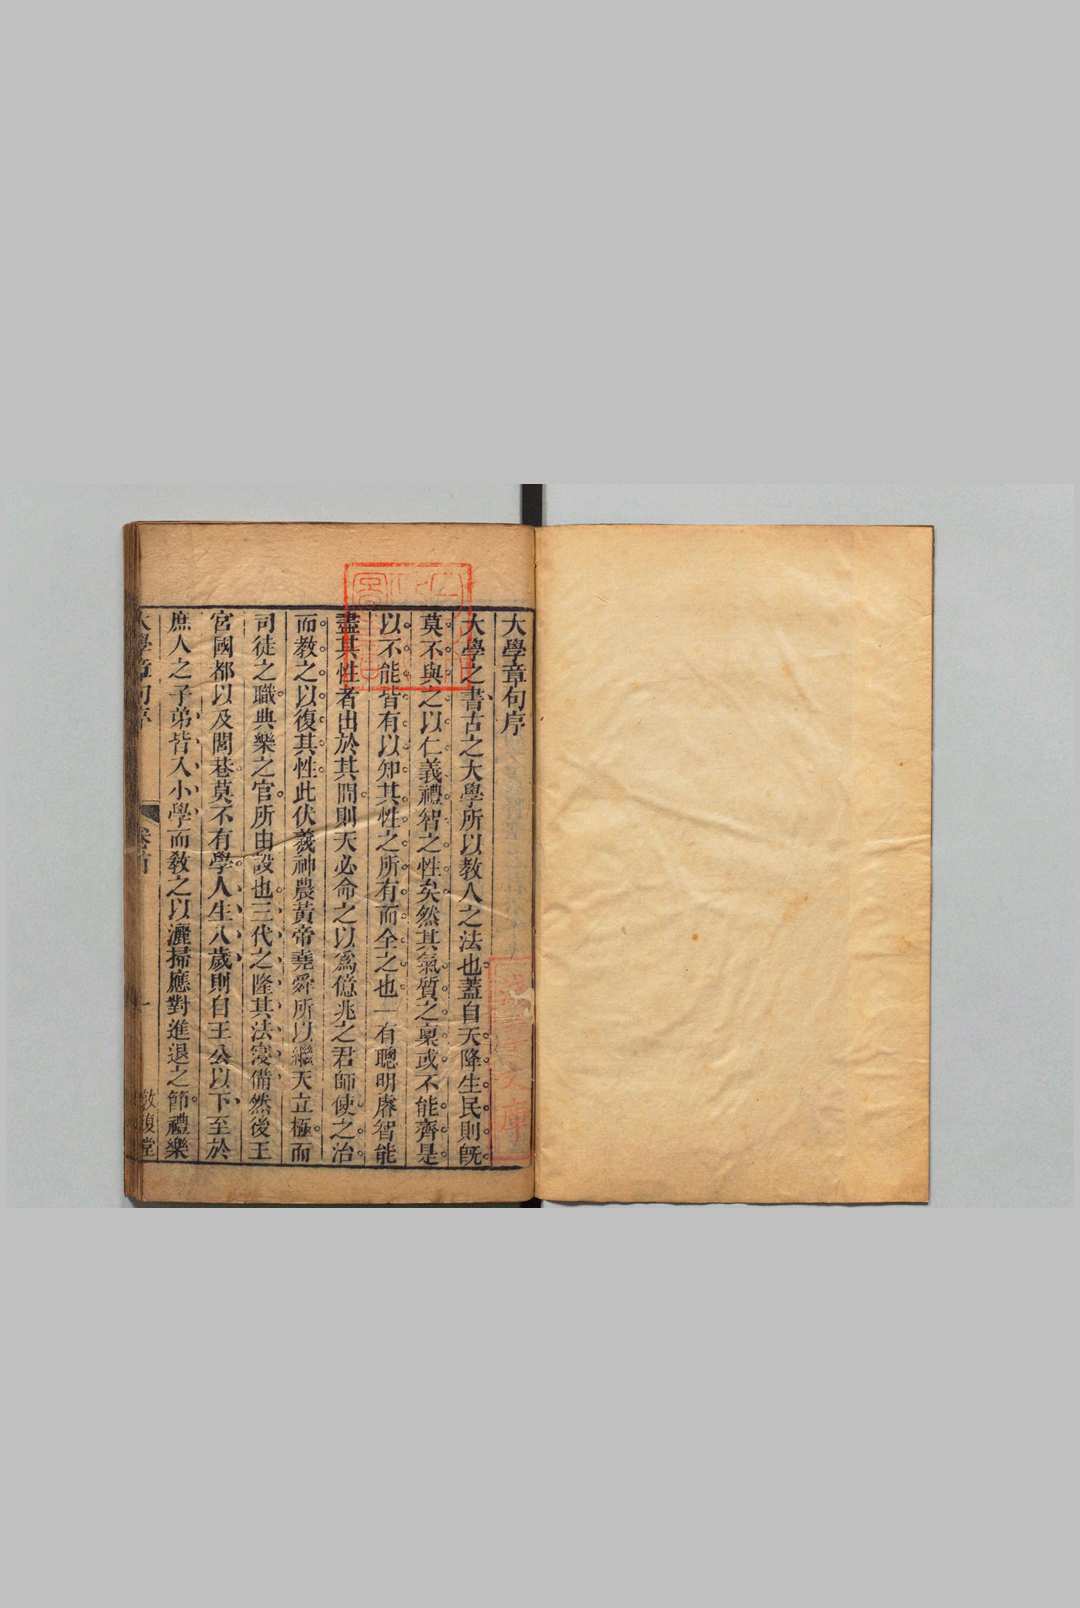 大學章句序
大學之書古之大學所以教人之法也蓋自天降生民則旣
莫不與之以仁義禮智之性矣然其氣質之稟或不能齊是
以不能皆有以知其性之所有而全之也一有聰明睿智能
盡其性者出於其間則天必命之以爲億兆之君師使之治
而教之以復其性此伏羲神農黃帝堯舜所以繼天立極而
司徒之職典樂之官所由設也三代之隆其法寖備然後王
宮國都以及閭巷莫不有學人生八歲則自王公以下至於
庶人之子弟皆入小學而敎之以灑掃應對進退之節禮樂
大學章句序 卷首 一 敦復堂
文庫